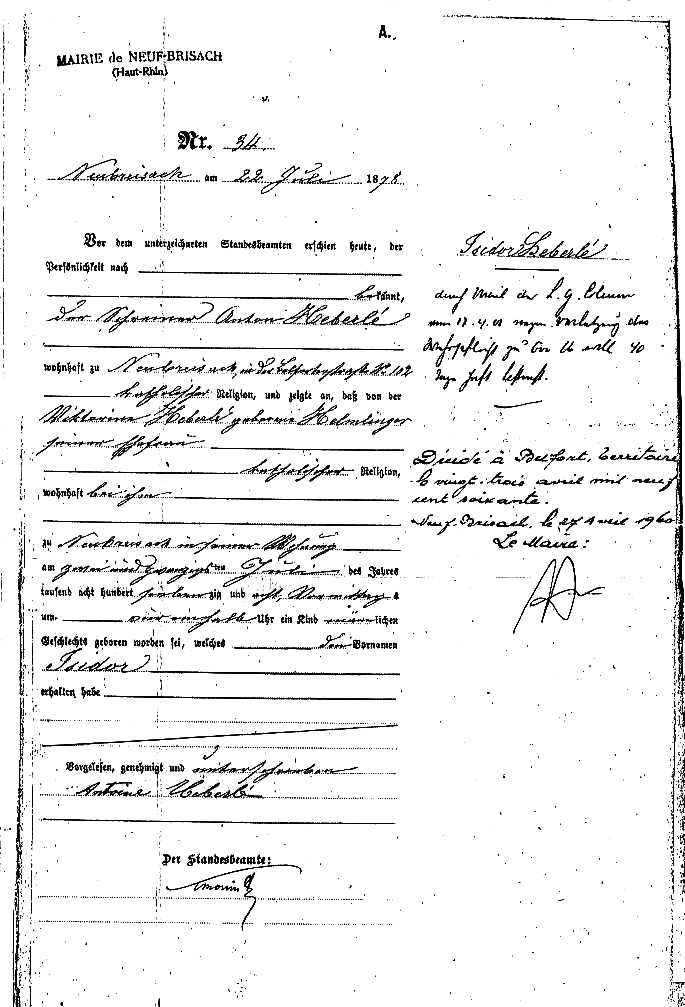 A.
MAIRIE de NEUF-BRISACH
(Haut-Rhin)
Nr. 34.
Neubreisach am 22 Juli 1878
Vor dem unterzeichneten Standesbeamten erschien heute, der
Persönlichkeit nach
bekannt,
der Schreiner Anton Heberlé
wohnhaft zu Neubreisach, in der Belforterstraße No 102
katholischer Religion, und zeigte an, daß von der
Viktorina Heberlé geborene Helmlinger
seiner Ehefrau
katholischer Religion,
wohnhaft bei ihm
zu Neubreisach in seiner Wohnung
am zwei und zwanzigsten Juli des Jahres
tausend acht hundert siebenzig und acht, Vormittags
um vier einhalb Uhr ein Kind männlichen
Geschlechts geboren worden sei, welches den Vornamen
Isidor
erhalten habe
Vorgelesen, genehmigt und unterschrieben
Antoine Heberlé
Der Standesbeamte:
Isidor Heberlé
durch Urteil des L. G. Colmar
vom 17.4.01 wegen Verletzung der
Wehrpflicht zu 40
Tage Haft
Décédé à Belfort, territoire
le vingt-trois avril mil neuf
cent soixante.
Neuf-Brisach, le 27 avril 1960
Le Maire: